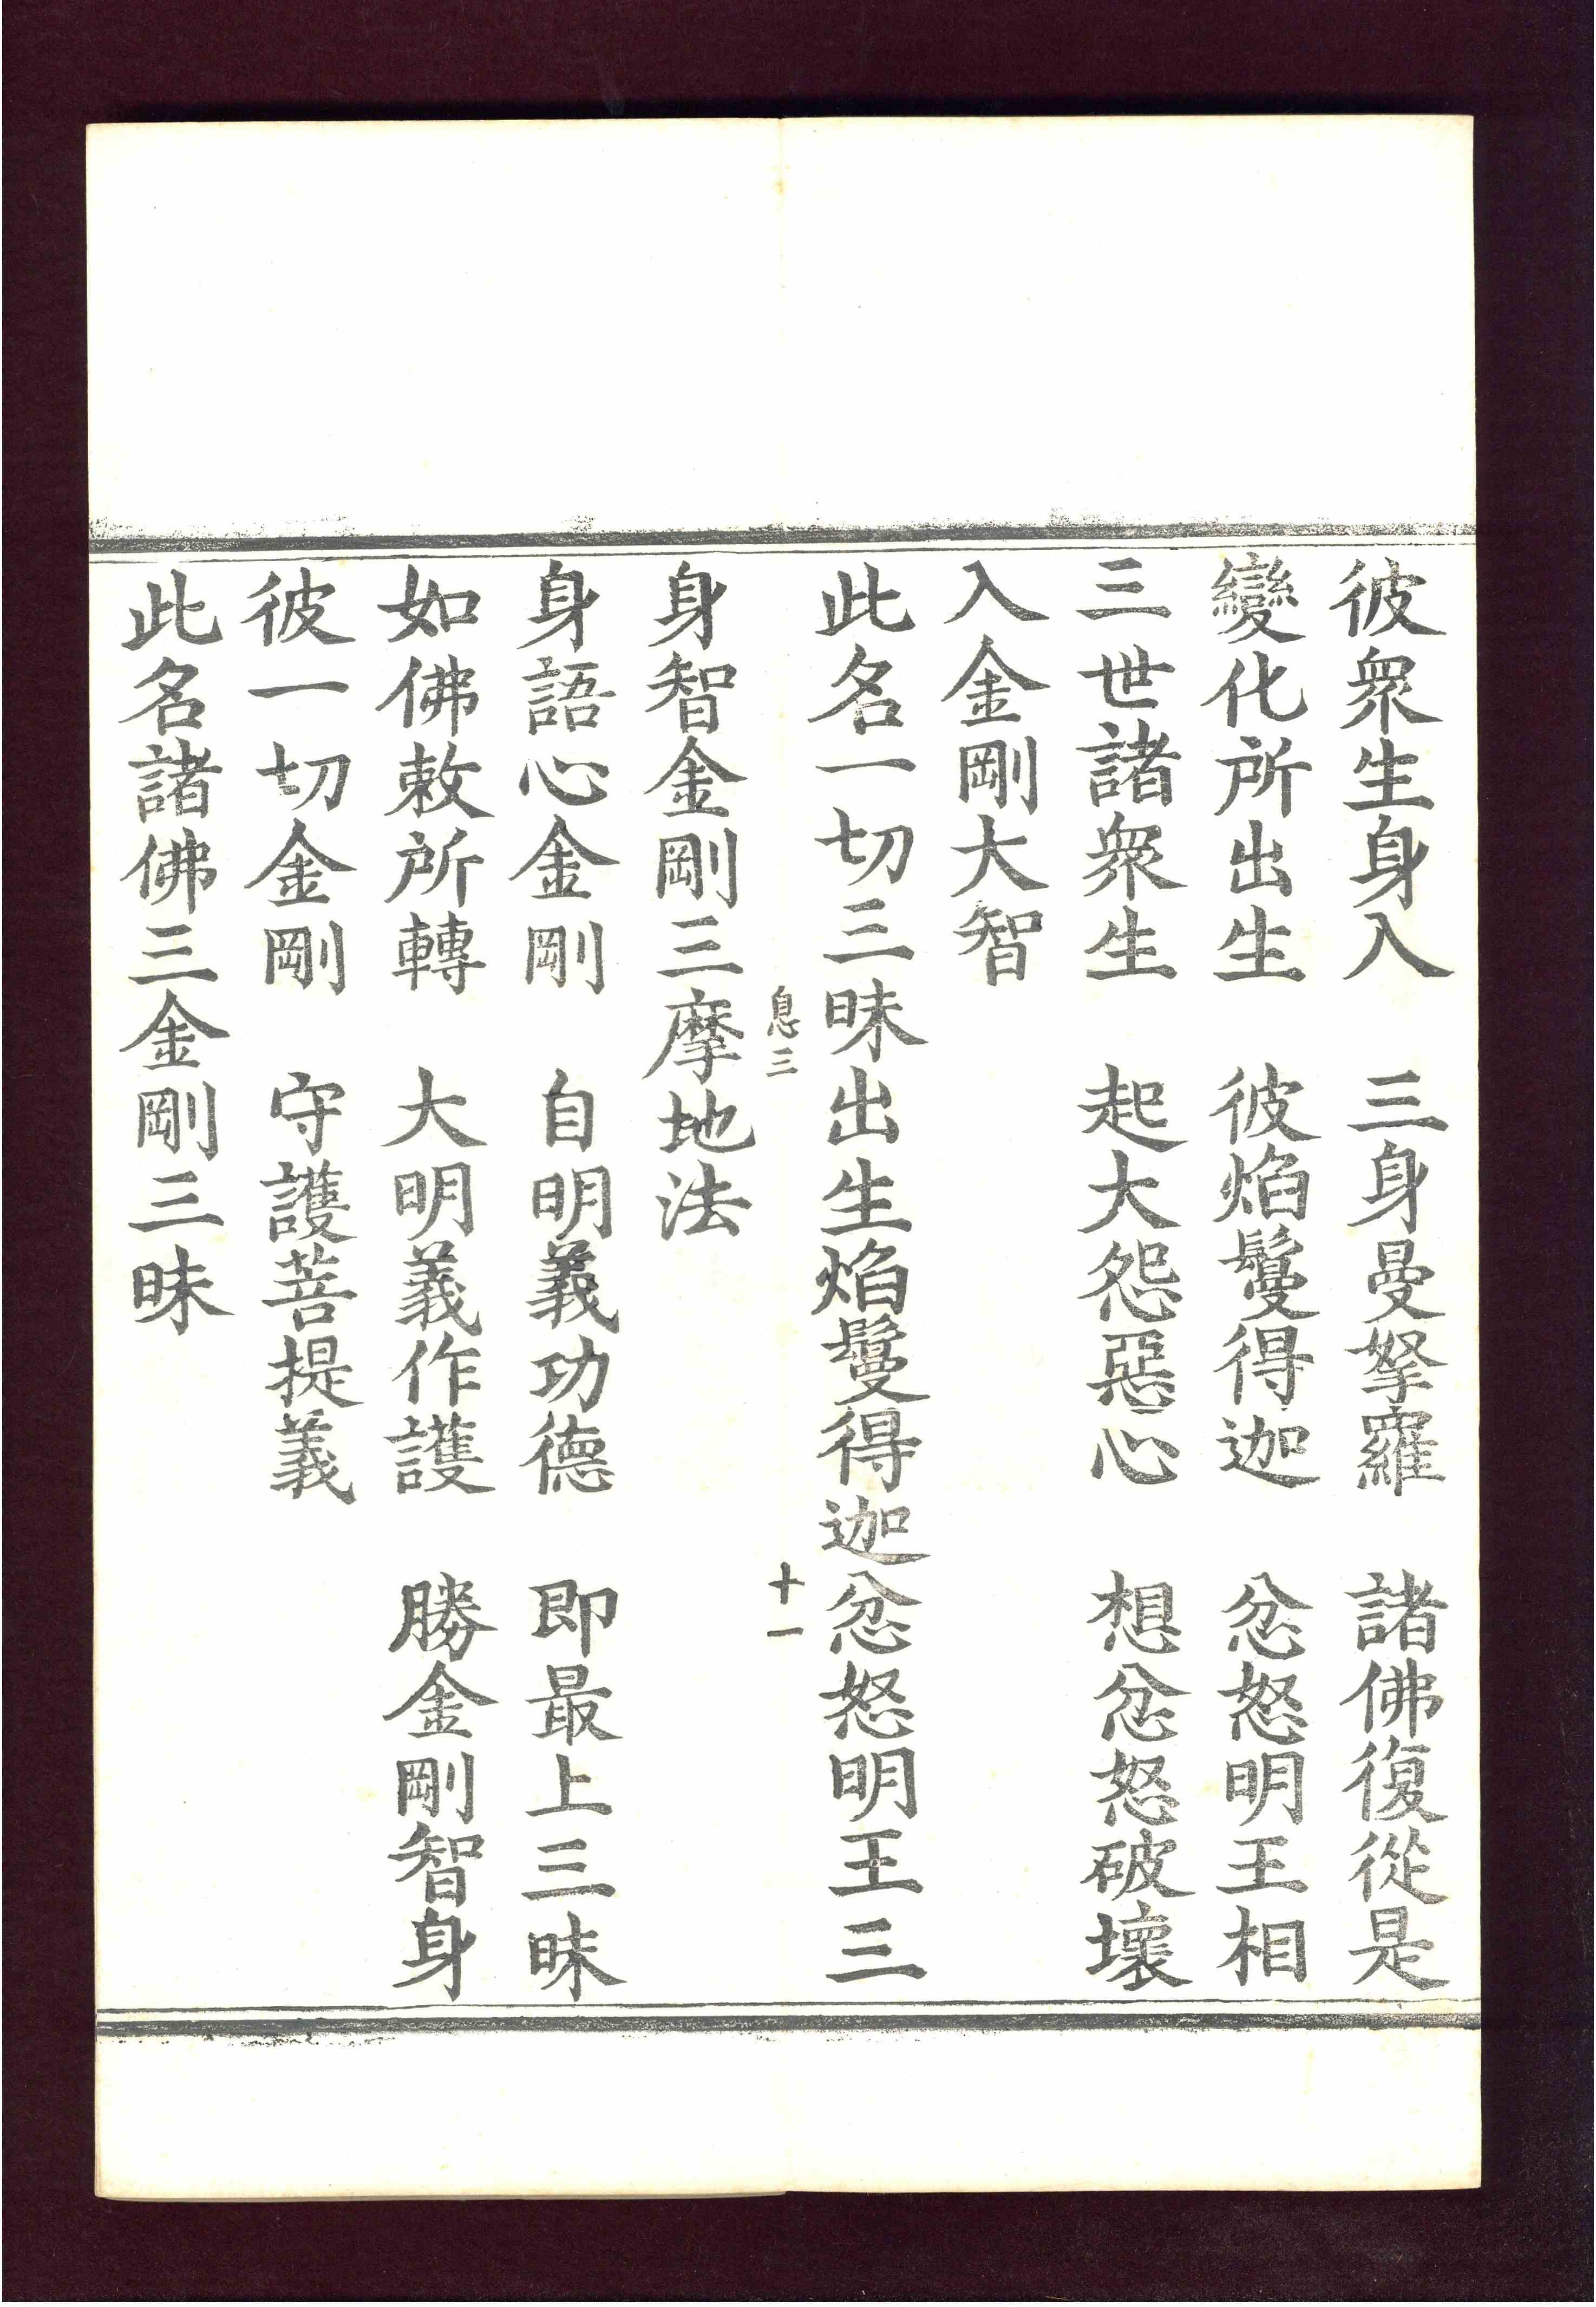 彼衆生身入　三身曼拏羅　諸佛復從是
變化所出生　彼焰鬘得迦　忿怒明王相
三世諸衆生　起大怨惡心　想忿怒破壞
入金剛大智
此名一切三昧出生焰鬘得迦忿怒明王三
息三　十一
身智金剛三摩地法
身語心金剛　自明義功德　即最上三昧
如佛敕所轉　大明義作護　勝金剛智身
彼一切金剛　守護菩提義
此名諸佛三金剛三昧